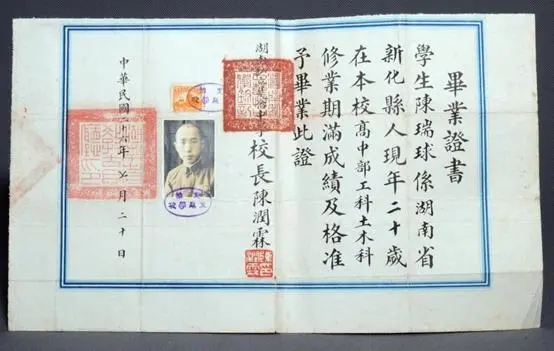 畢業證書
學生陳瑞球係湖南省
新化縣人現年二十歲
在本校高中部工科土木科
修業期滿成績及格准
予畢業此證
湖 校長陳潤霖
中華民國二十六年 月二十日